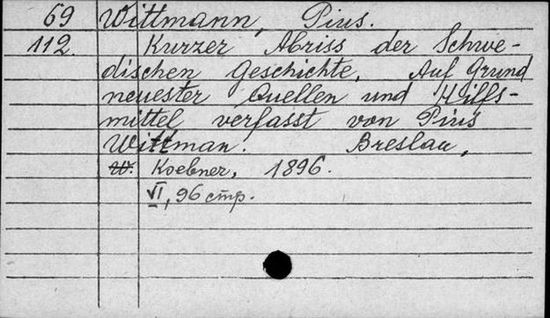 69 Wittmann, Pius.
112. Kurzer Abriss der Schwe-
dischen Geschichte. Auf Grund
neuester Quellen und Hilfs-
mittel verfasst von Pius
Wittman. Breslau,
W. Koebner, 1896.
VI, 96 стр.